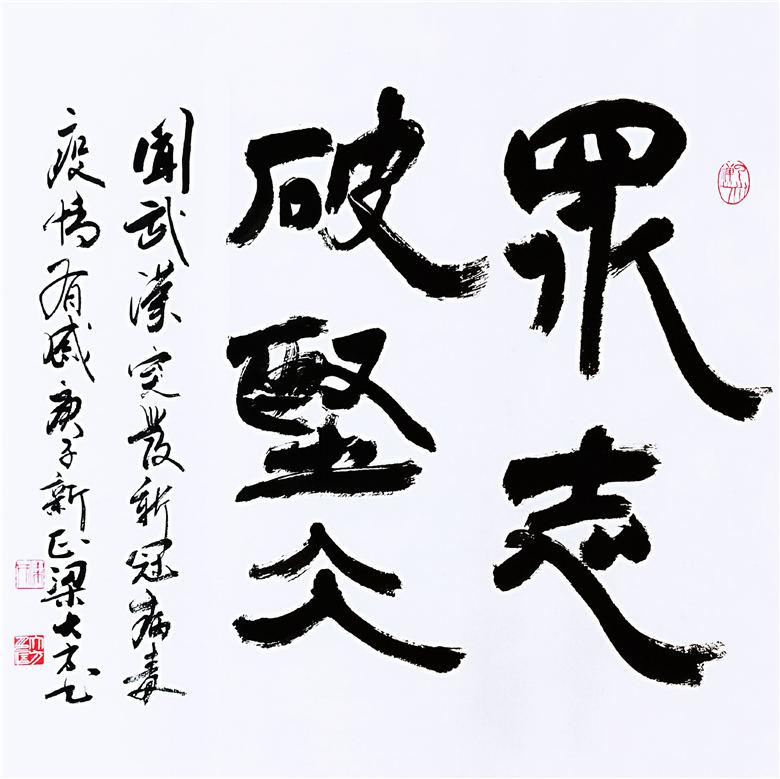 眾志
破堅仌
聞武漢突發新冠病毒
疫情有感庚子新正梁大方书